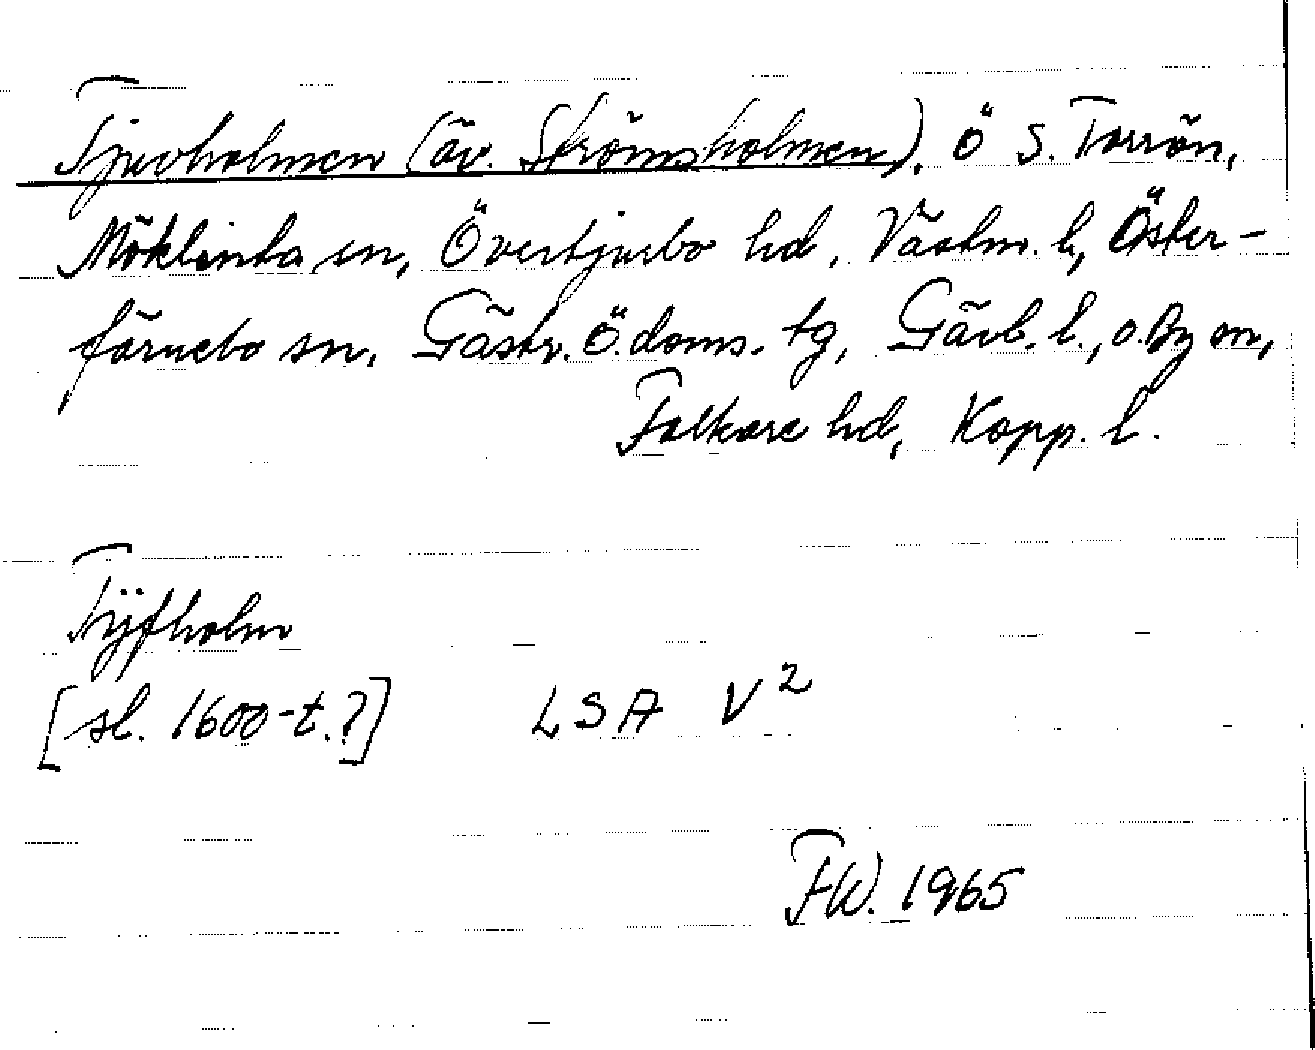 Tjuvholmen (äv. Strömsholmen), ö S. Torrön,
Möklinta sn, Övertjurbo hd, Västm. l, Öster-
färnebo sn, Gästr. Ö. doms. tg, Gävl. l., o. By sn,
Folkare hd, Kopp. l.
Tÿfholm
[sl. 1600-t.?] LSA V²
FW. 1965